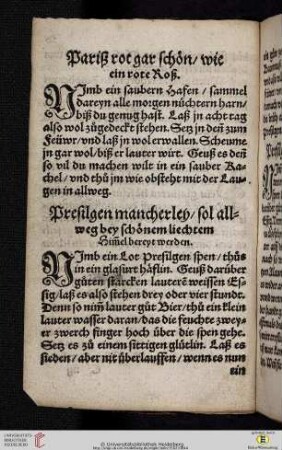 Pariß rot gar schön / wie
ein rote Roß.
NImb ein saubern Hafen / sammel
dareyn alle morgen nüchtern harn /
biß du genug hast. Laß jn acht tag
also wol zůgedeckt stehen. Setz jn den̄ zum
Feüwr / vnd laß jn wol erwallen. Scheume
jn gar wol / biß er lauter wirt. Geuß es den̄
so vil du machen wilt in ein sauber Ka-
chel / vnd thů jm wie obsteht mit der Lau-
gen in allweg.
Presilgen mancherley / sol all-
weg bey schönem liechtem
Him̄el bereyt werden.
NImb ein Lot Presilgen spen / thůs
in ein glasurt häflin. Geuß darüber
gůten starcken lautern weissen Es-
sig / laß es also stehen drey oder vier stundt.
Denn so nim̄ lauter gůt Bier / thů ein klein
lauter wasser daran / das die feuchte zwey-
er zwerch finger hoch über die spen gehe.
Setz es zů einem sittigen glůtlin. Laß es
sieden / aber nit überlauffen / wenn es nun
ein
UNIVERSITÄTS-
BIBLIOTHEK
HEIDELBERG
© Universitätsbibliothek Heidelberg